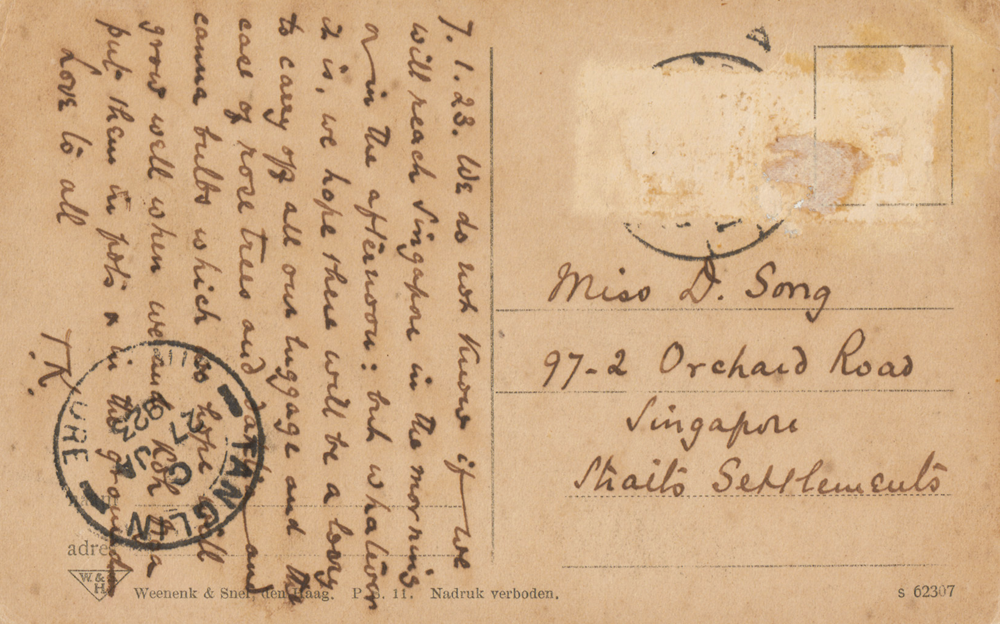 7.1.23. We do not know if we
will reach Singapore in the morning
or in the afternoon: but whatever
it is, we hope there will be a lorry
to carry off all our luggage and the
case of rose trees and and
canna bulbs which we hope will
grow well when we and Koh
put them in pots & in the ground
Love to all
T.K.
Miss D. Song
97-2 Orchard Road
Singapore
Straits Settlements
TANGLIN
adre
W. & S.
H.
Weenenk & Snel, den Haag. P. S. 11. Nadruk verboden.
s 62307